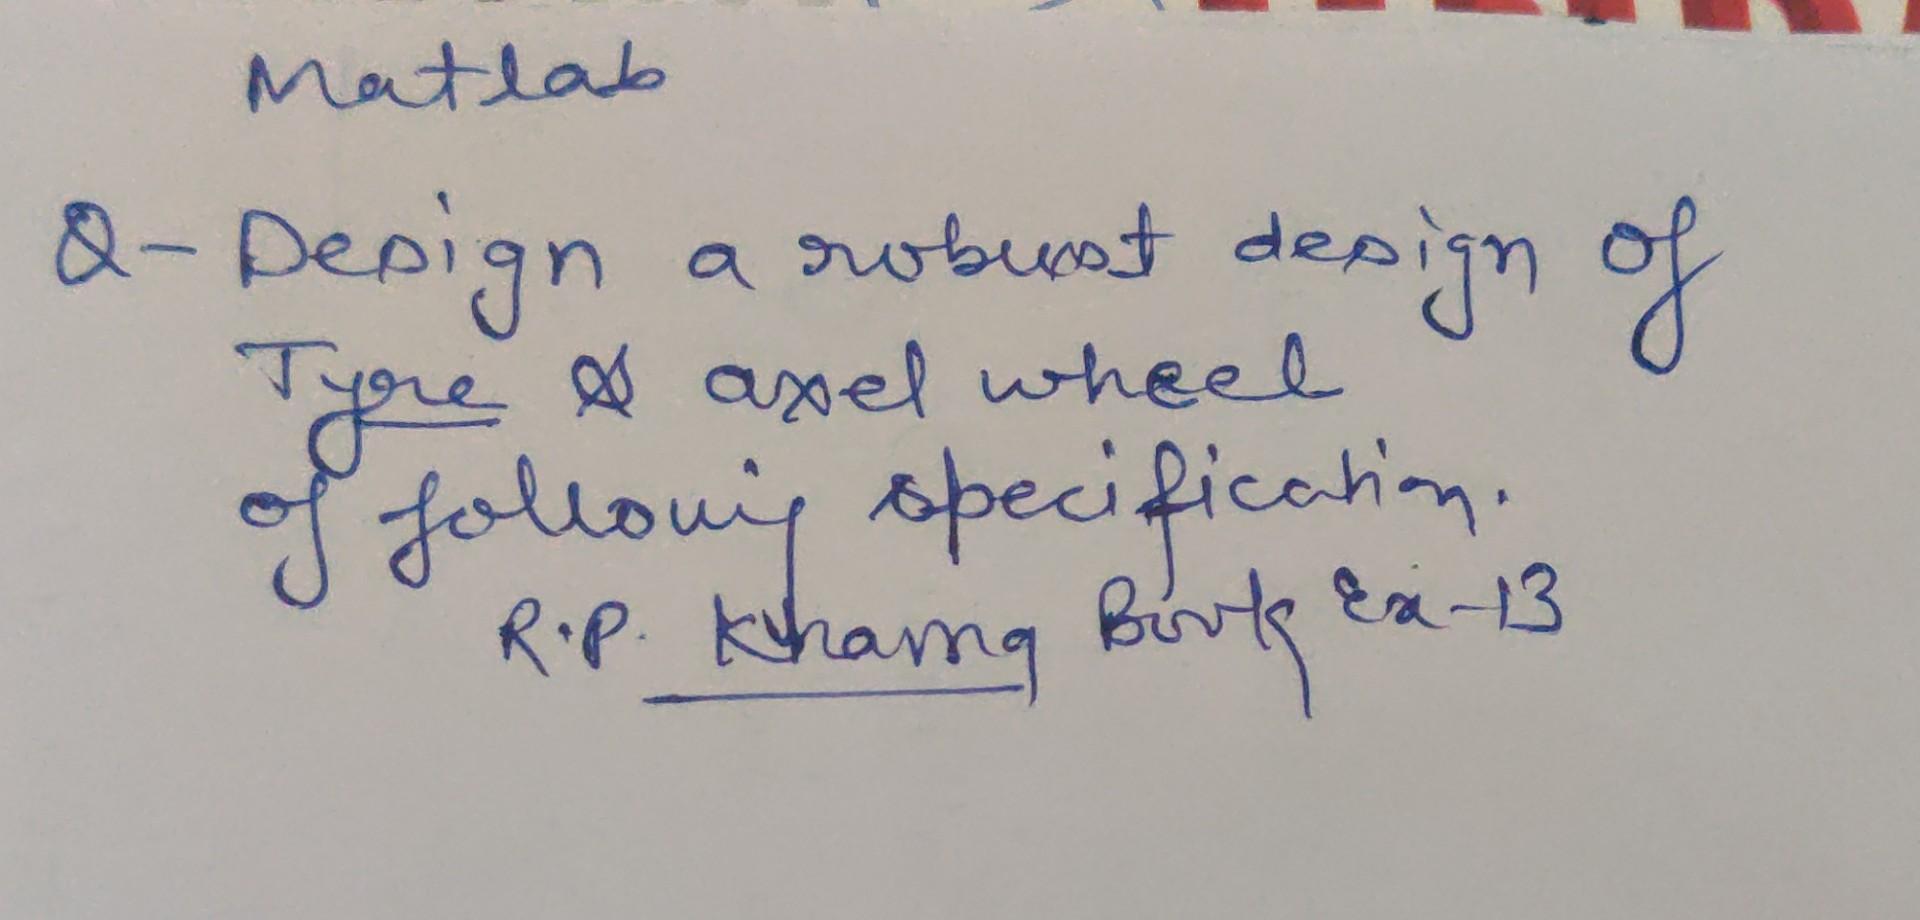 Matlab
Q- Design a robust design of
Tyre & axel wheel
of following specification.
R.P. Book Ex-13